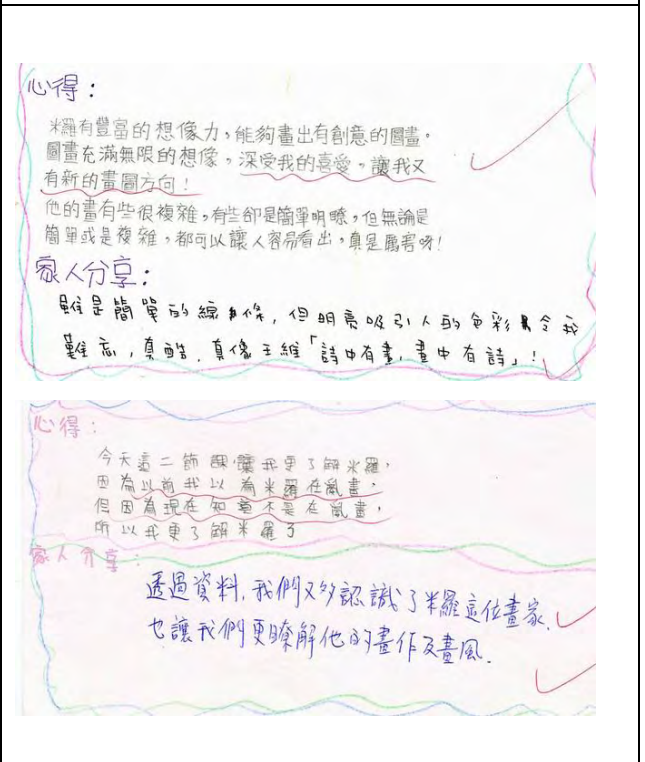 心得：
米羅有豐富的想像力，能夠畫出有創意的圖畫。
圖畫充滿無限的想像。深受我的喜愛，讓我又
有新的畫圖方向！
他的畫有些很複雜，有些卻是簡單明瞭，但無論是
簡單或是複雜，都可以讓人容易看出，真是厲害呀！
家人分享：
雖是簡單的線條，但明亮吸引人的色彩令我
難忘，真酷，真像王維「詩中有畫，畫中有詩」！
心得：
今天這二節課，讓我更了解米羅，
因為以前我以為米羅在亂畫，
但因為現在知道不是在亂畫，
所以我更了解米羅了
家人分享：
透過資料，我們又多認識了米羅這位畫家，
也讓我們更瞭解他的畫作及畫風。